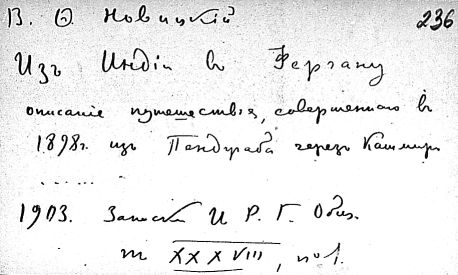 В. Ѳ. Новицкій 236
Изъ Индіи въ Фергану
описаніе путешествія, совершеннаго въ
1898 г. изъ Пенджаба черезъ Кашмиръ
......
1903. Записки И Р. Г. Общ.
т XXXVIII, no 1.